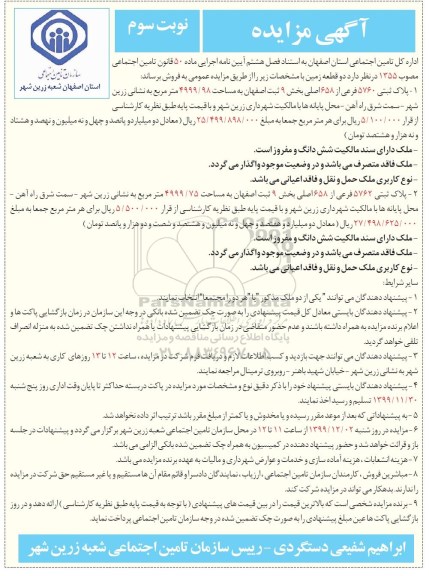 آگهی مزایده
نوبت سوم
سازمان تامین اجتماعی
استان اصفهان شعبه زرین شهر
اداره کل تامین اجتماعی استان اصفهان به استناد فصل هشتم آیین نامه اجرایی ماده ۵۰ قانون تامین اجتماعی
مصوب ۱۳۵۵ در نظر دارد دو قطعه زمین با مشخصات زیر را از طریق مزایده عمومی به فروش برساند:
۱- پلاک ثبتی ۵۷۶۰ فرعی از ۶۵۸ اصلی بخش ۹ ثبت اصفهان به مساحت ۴۹۹۹/۹۸ متر مربع به نشانی زرین
شهر - سمت شرق راه آهن - محل پایانه ها با مالکیت شهرداری زرین شهر و با قیمت پایه طبق نظریه کارشناسی
از قرار ۵/۱۰۰/۰۰۰ ریال برای هر متر مربع جمعا به مبلغ ۲۵/۴۹۹/۸۹۸/۰۰۰ ریال (معادل دو میلیارد و پانصد و چهل و نه میلیون و نهصد و هشتاد
و نه هزار و هشتصد تومان)
- ملک دارای سند مالکیت شش دانگ و مفروز است.
- ملک فاقد متصرف می باشد و در وضعیت موجود واگذار می گردد.
- نوع کاربری ملک حمل و نقل و فاقد اعیانی می باشد.
۲- پلاک ثبتی ۵۷۶۲ فرعی از ۶۵۸ اصلی بخش ۹ ثبت اصفهان به مساحت ۴۹۹۹/۷۵ متر مربع به نشانی زرین شهر - سمت شرق راه آهن -
محل پایانه ها با مالکیت شهرداری زرین شهر و با قیمت پایه طبق نظریه کارشناسی از قرار ۵/۵۰۰/۰۰۰ ریال برای هر متر مربع جمعا به مبلغ
۲۷/۴۹۸/۶۲۵/۰۰۰ ریال (معادل دو میلیارد و هفتصد و چهل و نه میلیون و هشتصد و شصت و دو هزار و پانصد تومان)
- ملک دارای سند مالکیت شش دانگ و مفروز است.
- ملک فاقد متصرف می باشد و در وضعیت موجود واگذار می گردد.
- نوع کاربری ملک حمل و نقل و فاقد اعیانی می باشد.
سایر شرایط:
۱- پیشنهاد دهندگان می توانند "یکی از دو ملک مذکور" یا "هر دو را مجتمعا" انتخاب نمایند.
۲- پیشنهاد دهندگان بایستی معادل کل قیمت پیشنهادی را به صورت چک تضمین شده بانکی در وجه این سازمان در زمان بازگشایی پاکت ها و
اعلام برنده مزایده به همراه داشته باشند و عدم حضور متقاضی در زمان بازگشایی پیشنهادات یا همراه نداشتن چک تضمین شده به منزله انصراف
تلقی خواهد گردید.
۳- پیشنهاد دهندگان می توانند جهت بازدید و کسب اطلاعات لازم و دریافت فرم شرکت در مزایده، ساعت ۱۲ تا ۱۳ روزهای کاری به شعبه زرین
شهر به نشانی زرین شهر - خیابان شهید باهنر - روبروی ترمینال مراجعه نمایند.
۴- پیشنهاد دهندگان بایستی پیشنهاد خود را با ذکر دقیق نوع و مشخصات مورد مزایده در پاکت دربسته حداکثر تا پایان وقت اداری روز پنج شنبه
۱۳۹۹/۱۱/۳۰ تسلیم و رسید اخذ نمایند.
۵- به پیشنهاداتی که بعد از موعد مقرر رسیده و یا مخدوش و یا کمتر از مبلغ مقرر باشد ترتیب اثر داده نخواهد شد.
۶- مزایده در روز شنبه ۱۳۹۹/۱۲/۰۲ از ساعت ۱۱ تا ۱۲ در محل سازمان تامین اجتماعی شعبه زرین شهر برگزار می گردد و پیشنهادات در جلسه
باز و قرائت خواهد شد و حضور پیشنهاد دهنده در کمیسیون به همراه چک تضمین شده بانکی الزامی می باشد.
۷- هزینه انشعابات، هزینه آماده سازی و خدمات و عوارض شهرداری و مالیات به عهده برنده مزایده می باشد.
۸- مباشرین فروش، کارمندان سازمان تامین اجتماعی، ارزیاب، نمایندگان دادسرا و قائم مقام آن ها مستقیم و یا غیر مستقیم حق شرکت در مزایده
را ندارند. بدهکار می تواند در مزایده شرکت کند.
۹- برنده مزایده شخصی است که بالاترین قیمت را در بین قیمت های پیشنهادی (با توجه به قیمت پایه طبق نظریه کارشناسی) ارائه دهد و در روز
بازگشایی پاکت ها عین مبلغ پیشنهادی را به صورت چک تضمین شده در وجه سازمان تامین اجتماعی پرداخت نماید.
ابراهیم شفیعی دستگردی - رییس سازمان تامین اجتماعی شعبه زرین شهر